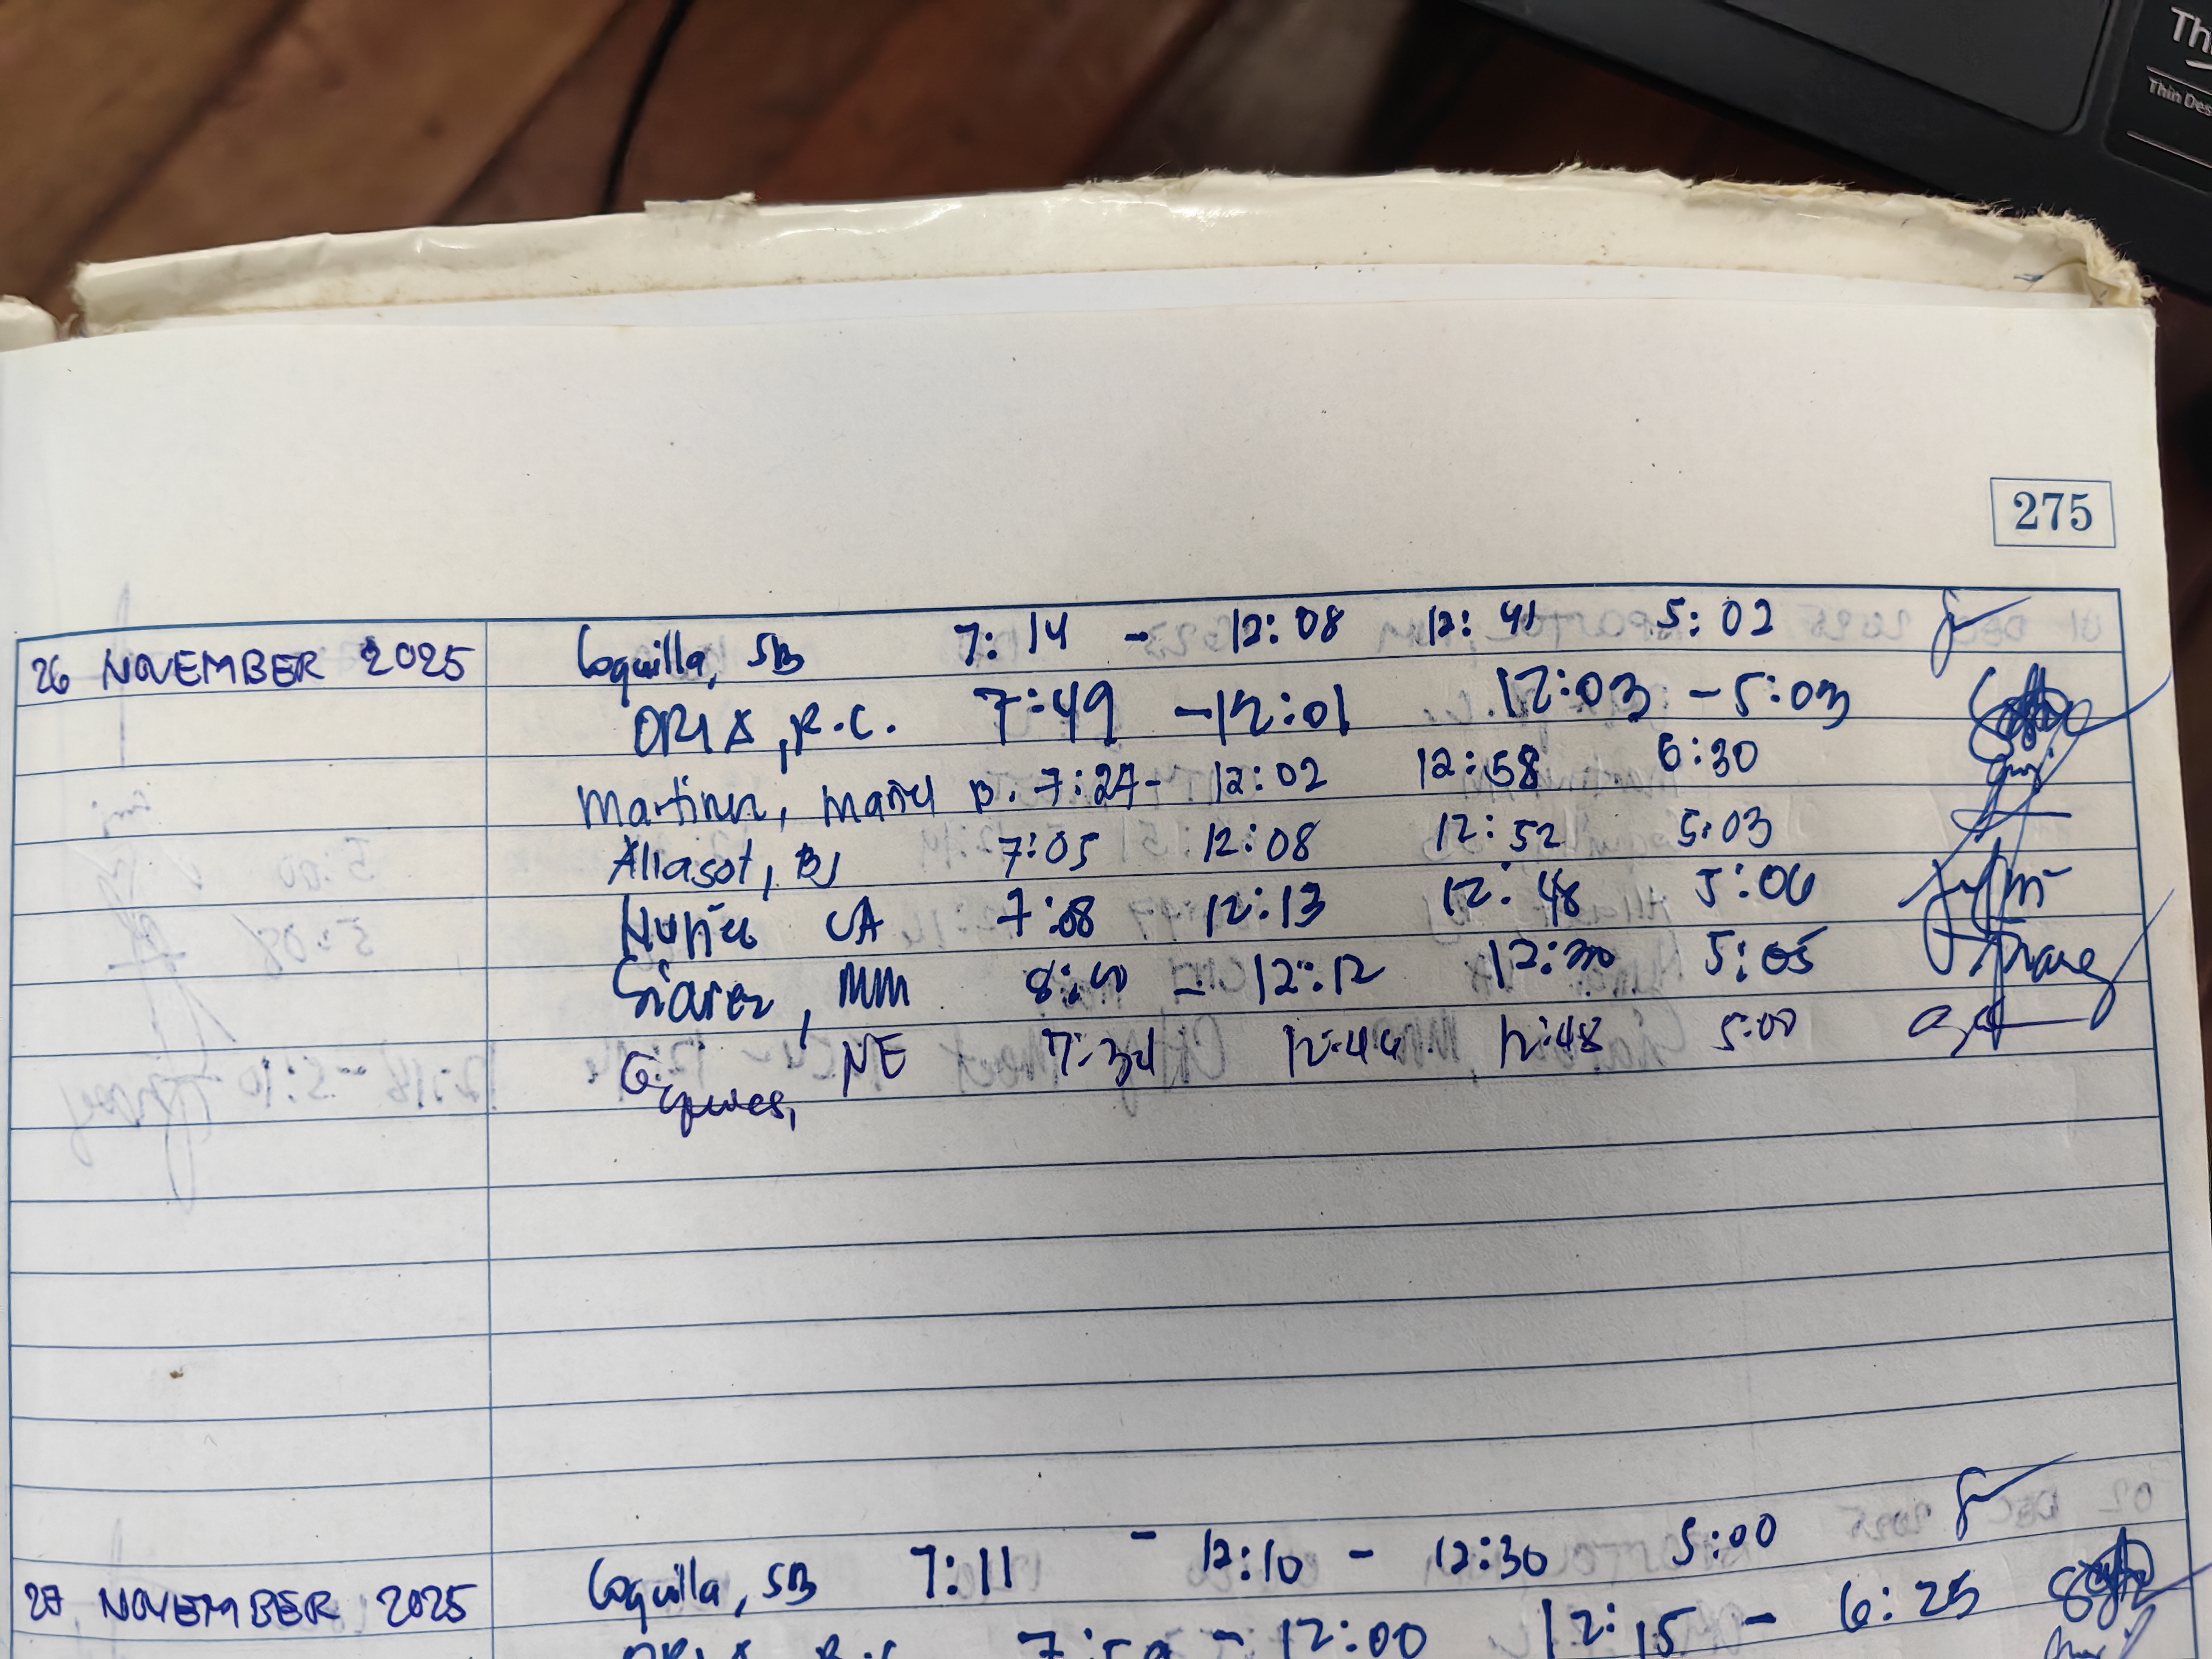 Th
Thin Des
275
26 NOVEMBER 2025 Coquilla, SB 7:14 - 12:08 12:41 5:02
ORIA, R.C. 7:49 - 12:01 12:03 - 5:03
Martinez, Mariel B. 7:27- 12:02 12:58 6:30
Aliasot, BJ 7:05 12:08 12:52 5:03
Nuñez CA 7:08 12:13 12:48 5:06
MM - 12:12 12:30 5:05
NE 7:34 12:44 12:48 5:00
27 NOVEMBER 2025 Coquilla, SB 7:11 - 12:10 - 12:30 5:00
ORIA R.C. - 12:00 12:15 - 6:25